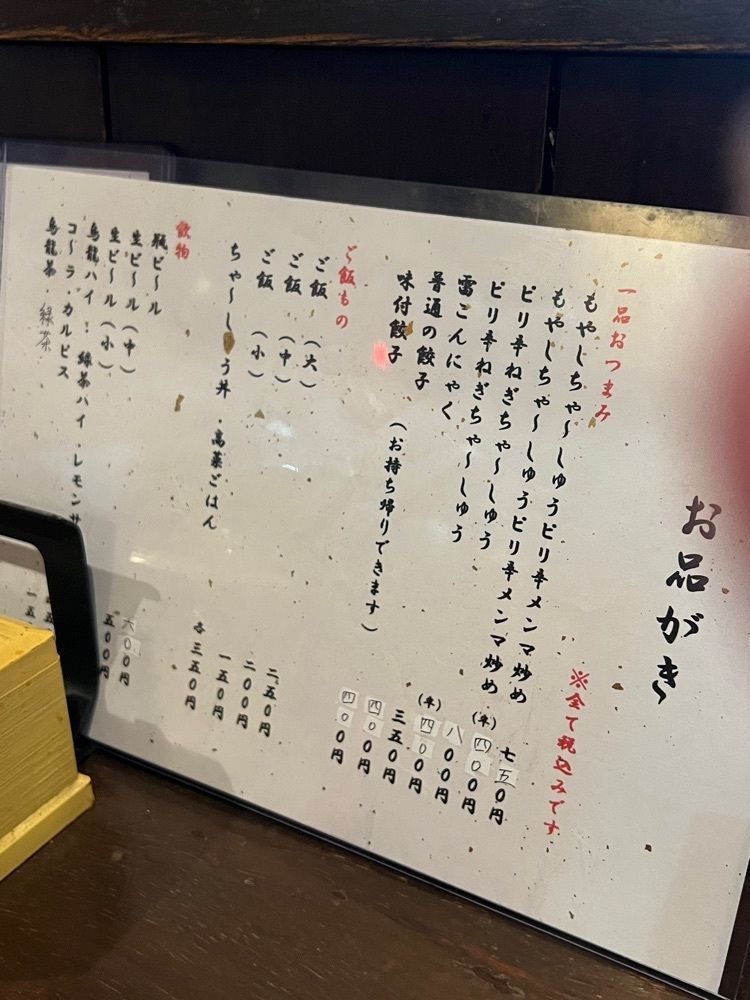 お品がき
※全て税込みです
一品おつまみ
もやしちゃ〜しゅうピリ辛メンマ炒め 七五0円
もやしちゃ〜しゅうピリ辛メンマ炒め (半) 四00円
ピリ辛ねぎちゃ〜しゅう 八00円
ピリ辛ねぎちゃ〜しゅう (半) 四00円
雷こんにゃく 三五0円
普通の餃子 四00円
味付餃子 (お持ち帰りできます) 四00円
ご飯もの
ご飯 (大) 二五0円
ご飯 (中) 二00円
ご飯 (小) 一五0円
ちゃ〜しゅう丼 ・高菜ごはん 各三五0円
飲物
瓶ビ〜ル 六00円
生ビ〜ル (中) 五00円
生ビ〜ル (小)
烏龍ハイ ・ 緑茶ハイ ・レモンサ
コ〜ラ・カルピス
烏龍茶 ・緑茶